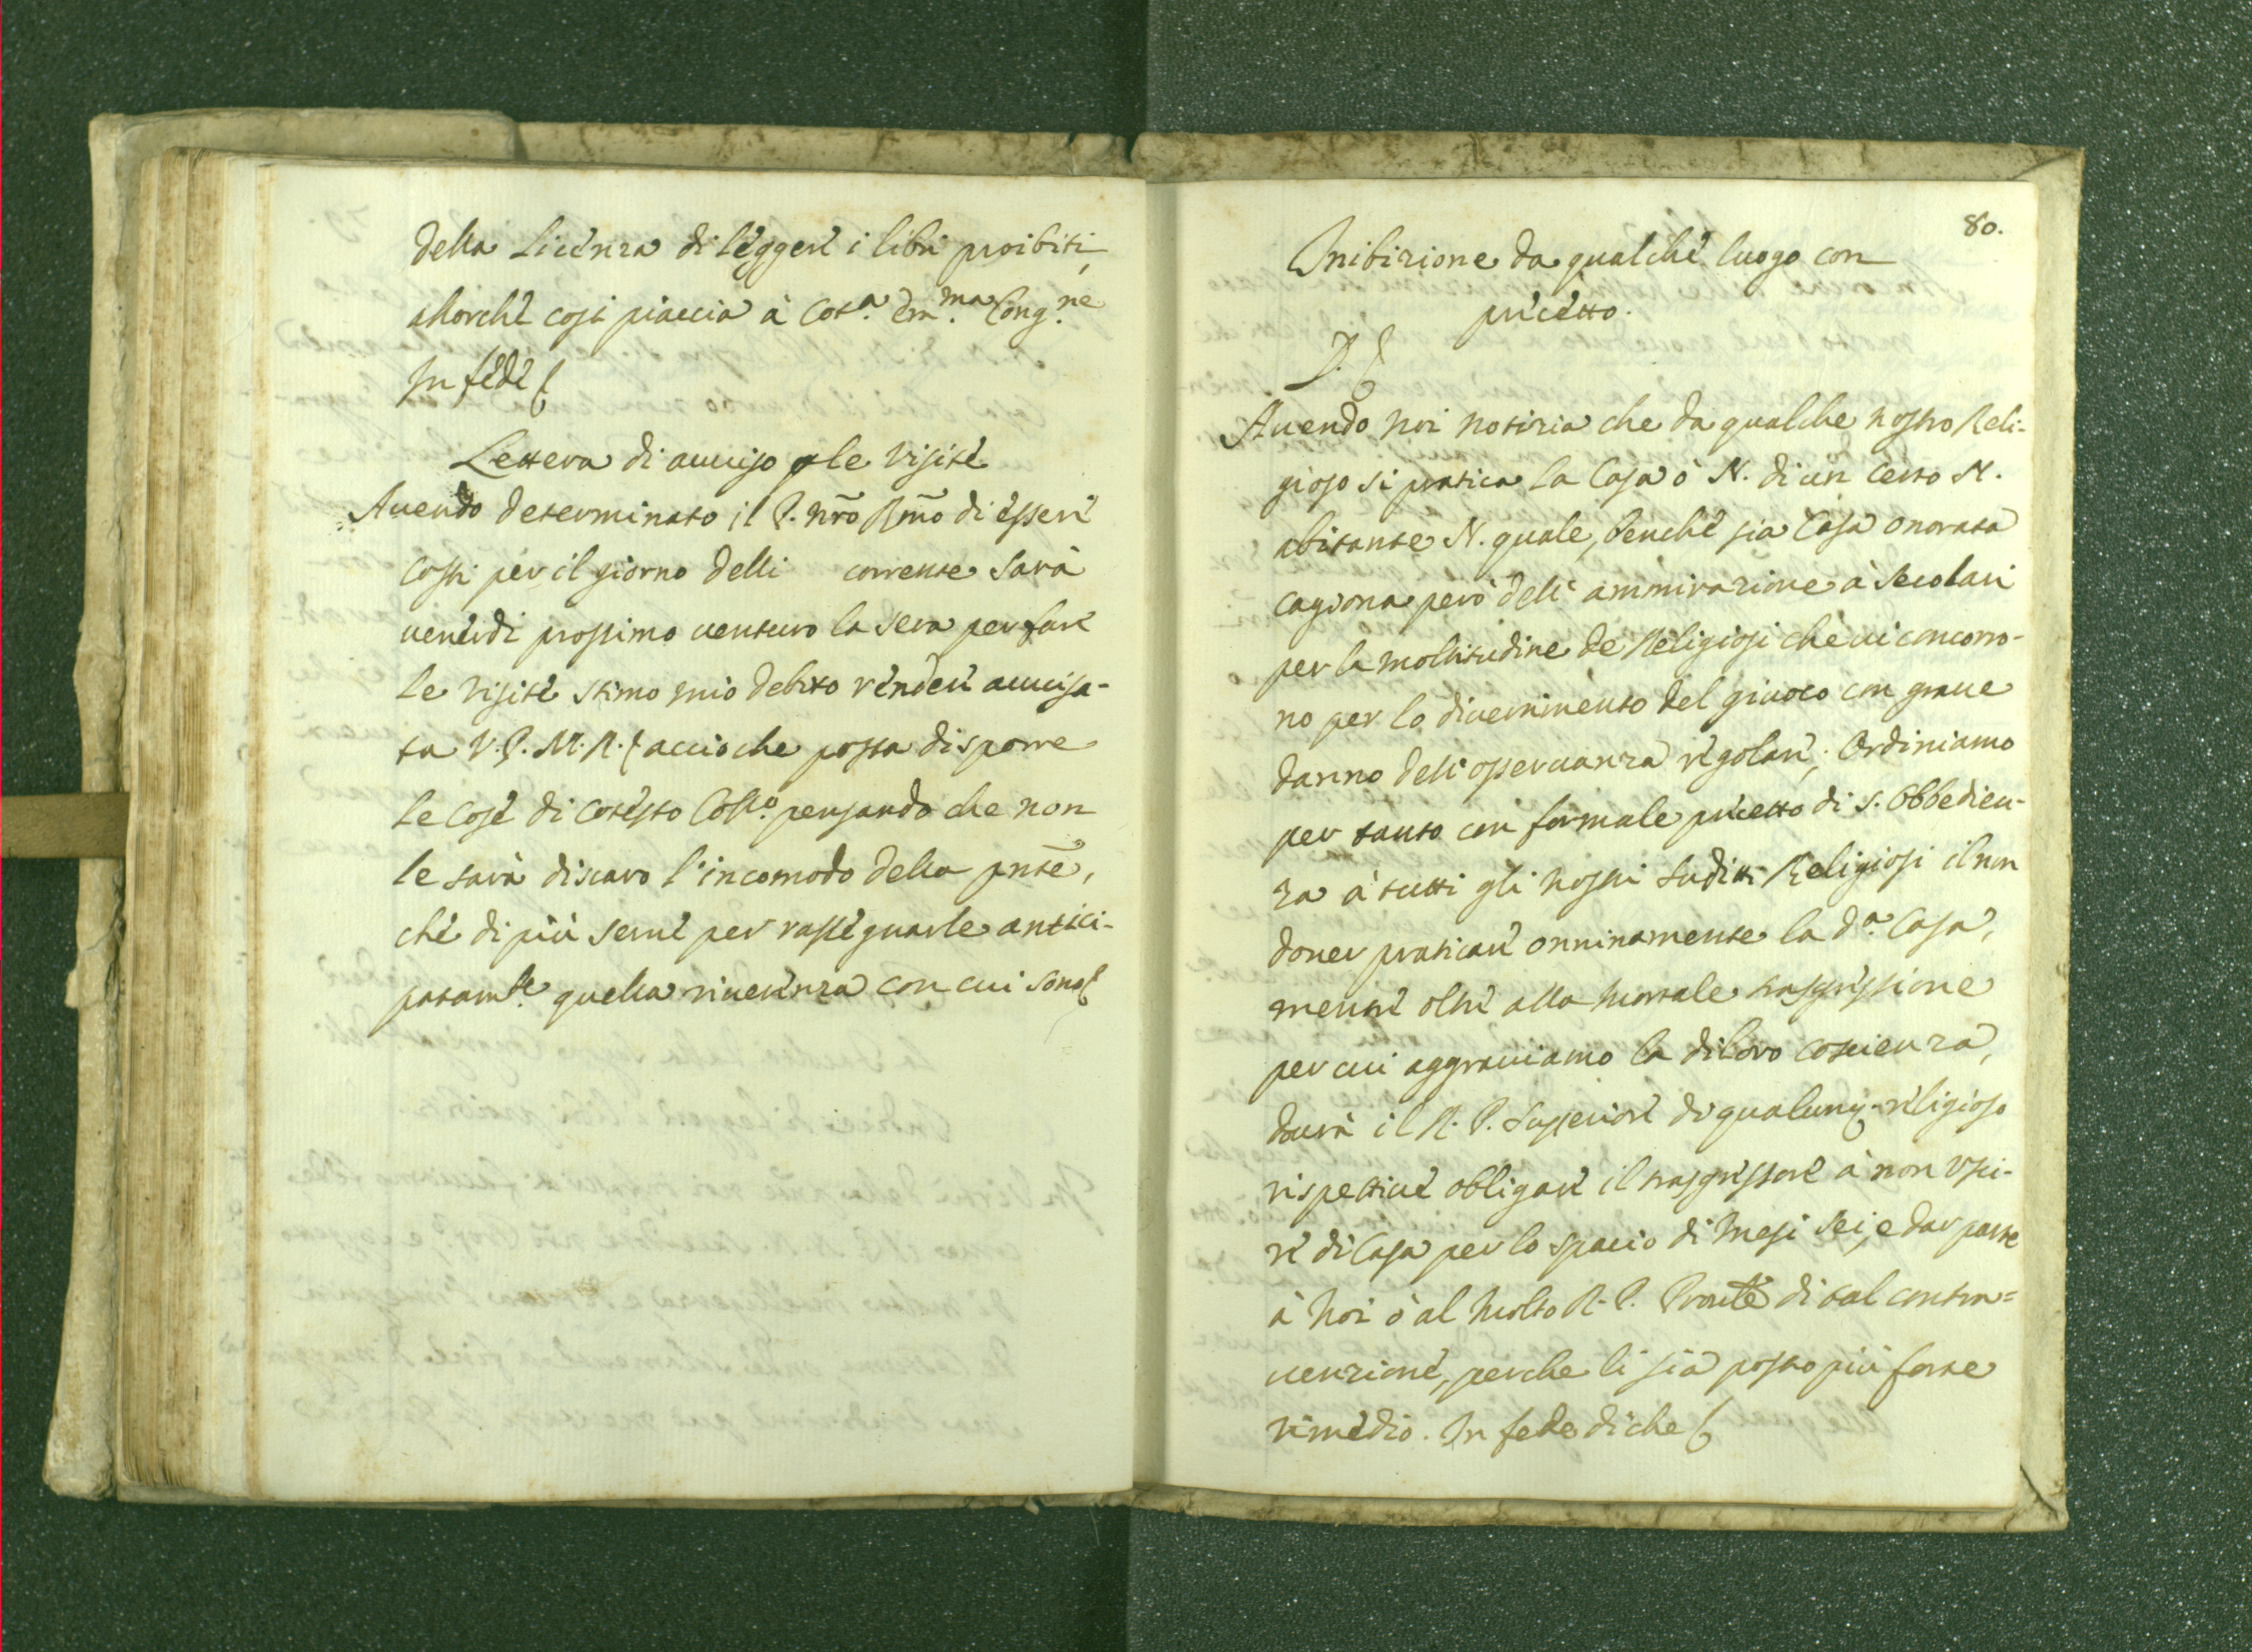 della Licenza di leggere i libri proibiti,
allorchè così piaccia à Cot.ª Em.ma Cong.ne
In fede &
Lettera di auuiso p le visite
Auendo determinato il P. nr̃o Rm̃o di essere
costi per il giorno delli corrente sarà
uenerdi prossimo uenturo la sera per fare
le visite stimo mio debito rendere auuisa-
ta V. P. M. R. & accioche possa disporre
le cose di cotesto Coll.o pensando che non
le sarà discaro l'incomodo della pnt̃e,
che di più serue per rassegnarle antici-
patam.te quella riuerenza con cui sono &
80.
Inibizione da qualche luogo con
precetto.
D. &
Auendo noi notizia che da qualche nostro Reli-
gioso si pratica la Casa ò N. di un certo N.
abitante N. quale, benchè sia Casa onorata
cagiona però dell' ammirazione à secolari
per la moltitudine de Religiosi che ui concorro-
no per lo diuertimento del giuoco con graue
danno dell' osseruanza regolare; Ordiniamo
per tanto con formale precetto di S. Obbedien-
za à tutti gli nostri sudditi Religiosi il non
douer praticare onninamente la d.ª Casa,
mentre oltre alla mortale trasgressione
per cui aggrauiamo la di loro coscienza,
dourà il R. P. Superiore di qualunq; religioso
rispettiue obligare il trasgressore à non usci-
re di Casa per lo spacio di mesi sei, e dar parte
à Noi ò al molto R. P. Pronle di tal contra=
uenzione, perche li sia posto più forte
rimedio. In fede di che &